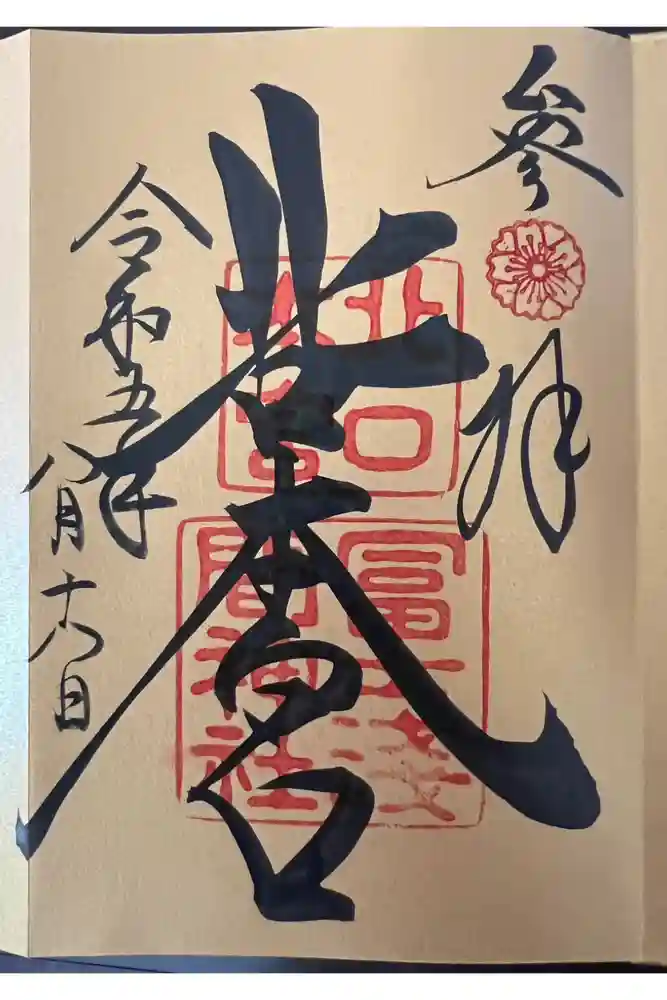 參拝
北口本宮
令和五年
八月十六日
北口
本宮
冨士浅
間神社